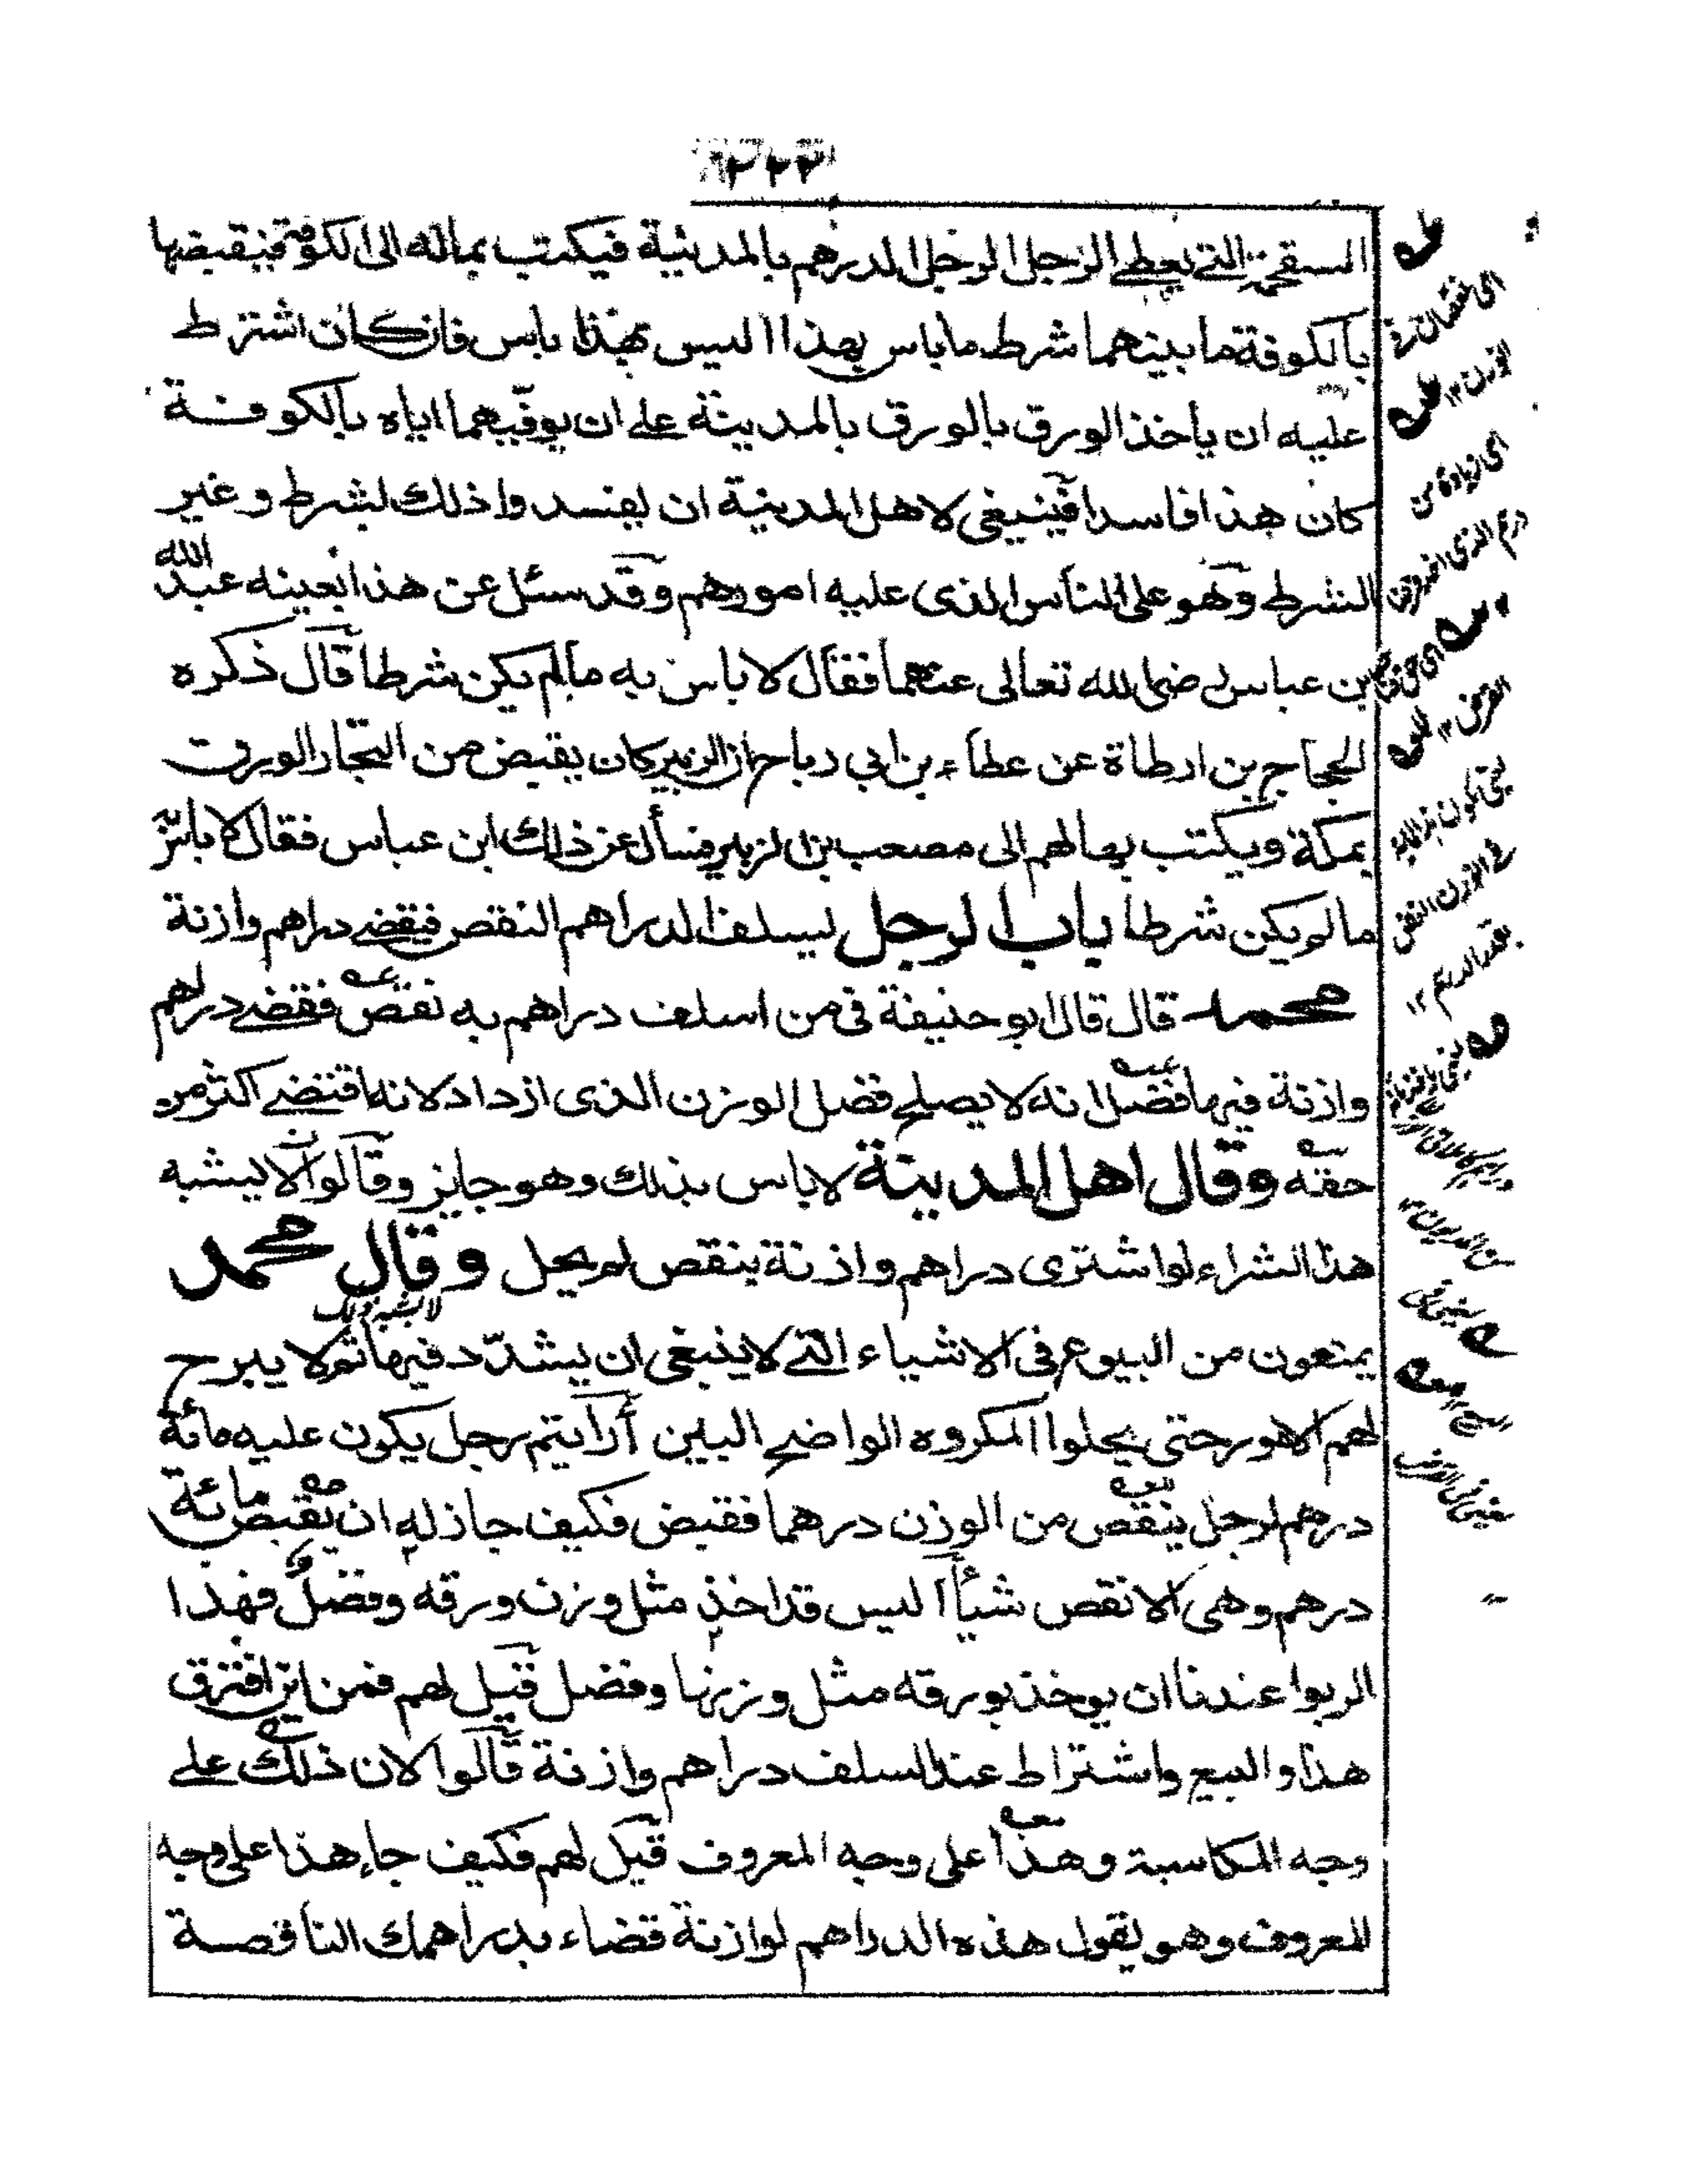 السفتجة التي يعطي الرجل الرجل الدرهم بالمدينة فيكتب بماله الى الكوفة فيقبضها
بالكوفة ما بينهما شرط ما باس بهذا اليس بهذا باس فان كان اشترط
عليه ان يأخذ الورق بالورق بالمدينة على ان يوفيهما اياه بالكوفة
كان هذا فاسدا فينبغى لاهل المدينة ان يفسدوا ذلك لشرط وغير
الشرط وهو على الناس الذى عليه امورهم وقد سئل عن هذا بعينه عبد الله
بن عباس رضى الله تعالى عنهما فقال لا باس به مالم يكن شرطا قال ذكره
الحجاج بن ارطاة عن عطاء بن ابي رباح ان الزبير كان يقبض من التجار الورق
بمكة ويكتب بها لهم الى مصعب بن الزبير فسأل عن ذلك ابن عباس فقال لا باس
مالم يكن شرطا باب الرجل ليسلف الدراهم النقص فيقضي دراهم وازنة
محمد قال قال ابو حنيفة في من اسلف دراهم به نقص فقضي دراهم
وازنة فيها فضل انه لا يصلح فضل الوزن الذى ازداد لانه اقتضي اكثر من
حقه وقال اهل المدينة لا باس بذلك وهو جايز وقالوا لان لا يشبه
هذا الشراء لو اشترى دراهم وازنة بنقص لم يحل وقال محمد
يمتعون من البيوع في الاشياء التي لا ينبغى ان يشدد فيها ثم لا يبرح
لهم الامور حتى يحلوا المكروه الواضح البين أرأيتم رجل يكون عليه مائة
درهم لرجل ينقص من الوزن درهما فقبض فكيف جاز له ان يقبض مائة
درهم وهى لا نقص شيأ اليس قد اخذ مثل وزن ورقه وفضل فهذا
الربوا عندنا ان يوخذ بورقه مثل وزنها وفضل قيل لهم فمن اين افترق
هذا والبيع واشتراط عند السلف دراهم وازنة قالوا لان ذلك على
وجه المكاسبة وهذا على وجه المعروف قيل لهم فكيف جاء هذا على وجه
المعروف وهو يقول هذه الدراهم لوازنة قضاء بدراهمك الناقصة